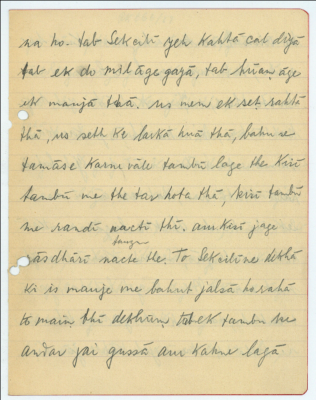 na ho. tab Sekcilī yeh kahtā cal diyā
tab ek do mil āge gayā, tab hūan āge
ek manjā thā. us mem ek seṭ rahtā
thā, us seth ke larkā huā thā, bahu se
tamāse karne vāle tambū lage the kisī
tambū me the tar hota thā, kisī tambū
me randī nactī thī. aur kisī jage
rāsdhārī nacte the. To Sekcilī ne dekhā
ki is manje me bahut jalsā ho rahā
to main bhī dekhum, to ek tambu ke
andar jai gussā aur kahne lagā